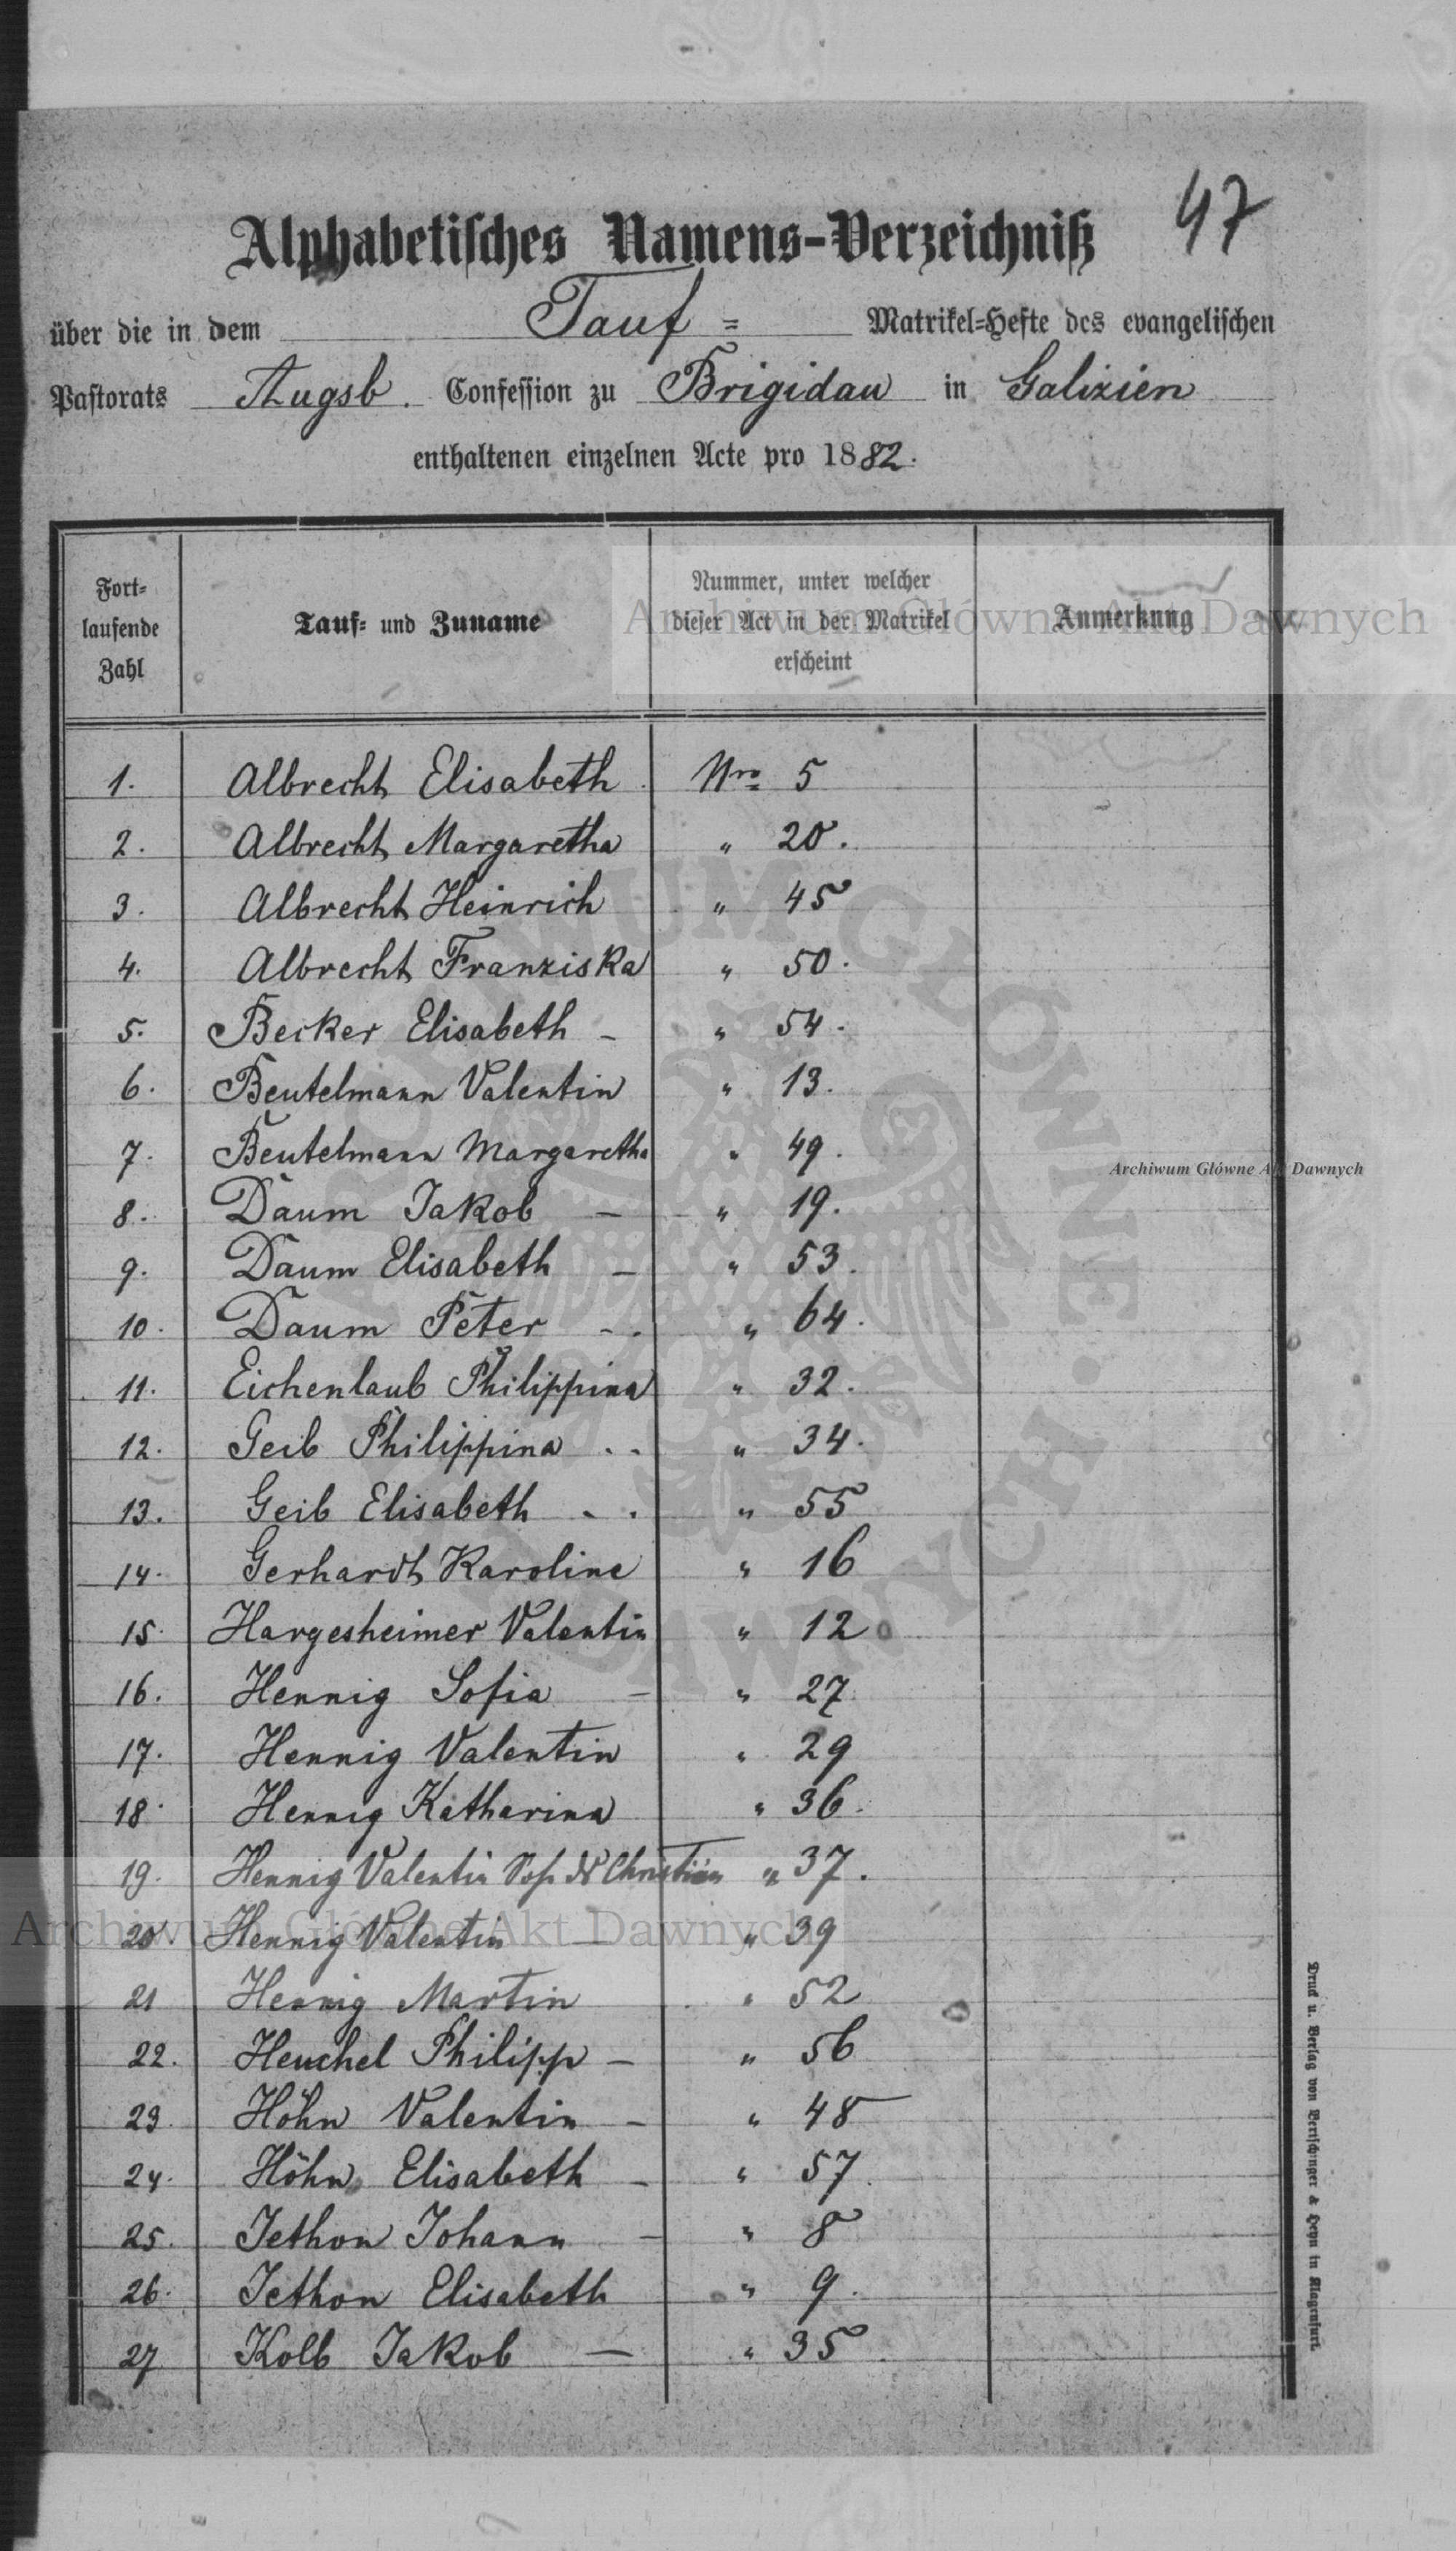 47
Alphabetisches Namens-Verzeichniß
über die in dem Tauf= Matrikel=Hefte des evangelischen
Pastorats Augsb. Confession zu Brigidau in Galizien
enthaltenen einzelnen Acte pro 1882.
Fort=
laufende
Zahl
Tauf= und Zuname
Nummer, unter welcher
dieser Act in der Matrikel
erscheint
Anmerkung
Archiwum Główne Akt Dawnych
1. Albrecht Elisabeth Nro 5
2. Albrecht Margaretha " 20.
3. Albrecht Heinrich " 45
4. Albrecht Franziska " 50.
5. Becker Elisabeth - " 54.
6. Beutelmann Valentin " 13.
7. Beutelmann Margaretha " 49.
Archiwum Główne Akt Dawnych
8. Daum Jakob — " 19.
9. Daum Elisabeth — " 53.
10. Daum Peter - . " 64.
11. Eichenlaub Philippina " 32.
12. Geib Philippina . . " 34.
13. Geib Elisabeth . . " 55
14. Gerhardt Karoline " 16
15. Hargesheimer Valentin " 12
16. Hennig Sofia — " 27
17. Hennig Valentin " 29
18. Hennig Katharina " 36.
19. Hennig Valentin des Christian " 37.
20. Hennig Valentin — " 39
Archiwum Główne Akt Dawnych
21 Hennig Martin " 52
22. Heuchel Philipp — " 56
23. Höhn Valentin — " 48
24. Höhn Elisabeth — " 57.
25. Jethon Johann — " 8
26. Jethon Elisabeth " 9.
27 Kolb Jakob — " 35.
Druck u. Verlag von Bertschinger & Heyn in Klagenfurt.
ARCHIWUM GŁÓWNE AKT DAWNYCH